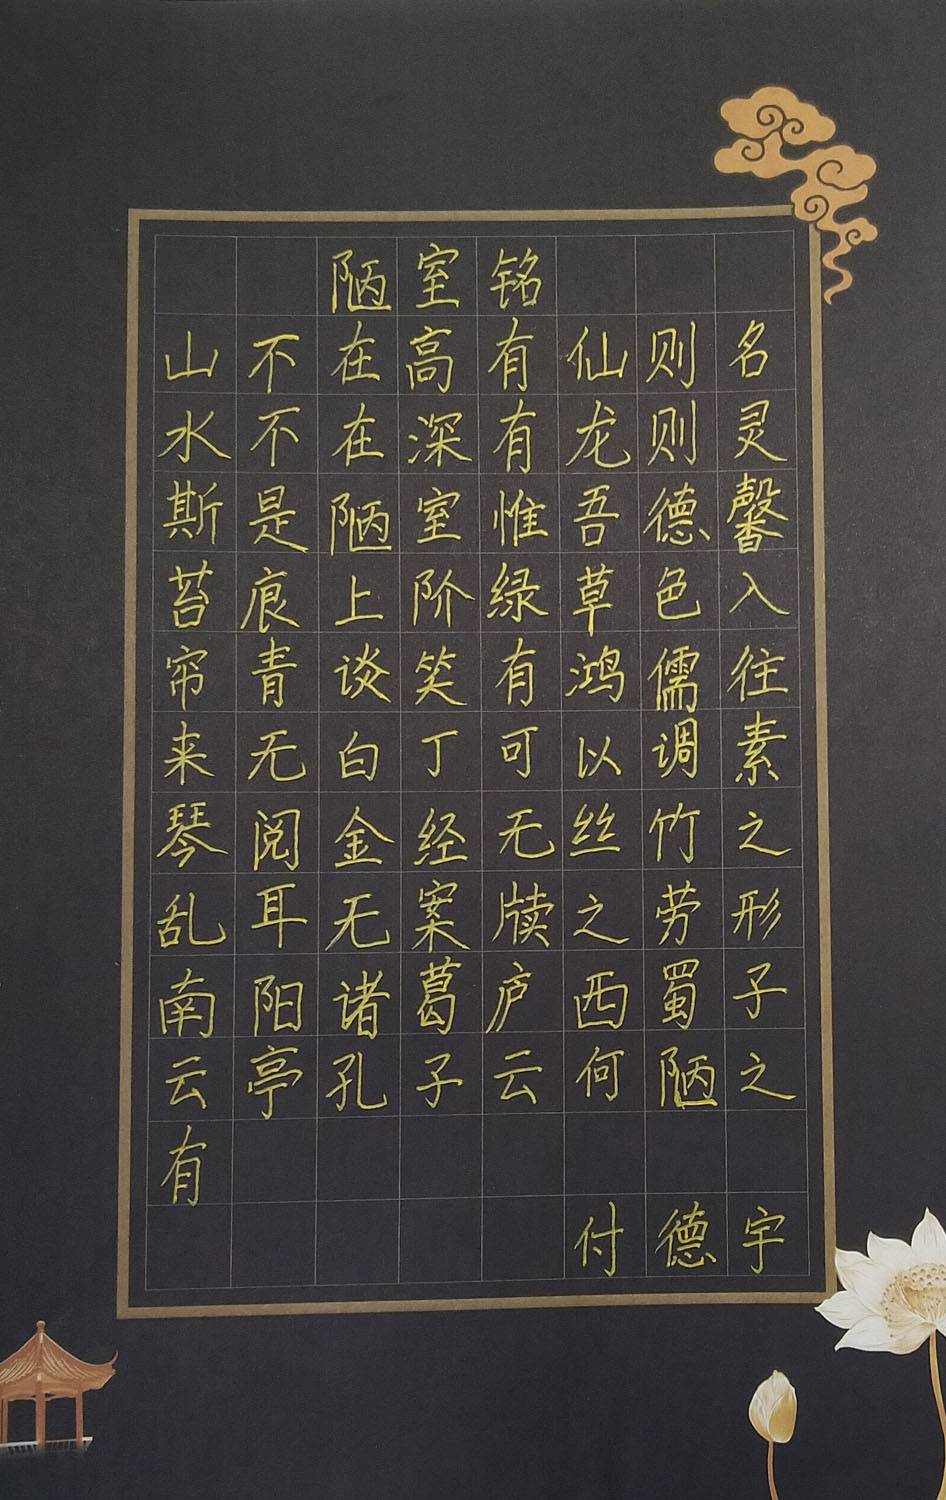 陋室铭
山不在高有仙则名
水不在深有龙则灵
斯是陋室惟吾德馨
苔痕上阶绿草色入
帘青谈笑有鸿儒往
来无白丁可以调素
琴阅金经无丝竹之
乱耳无案牍之劳形
南阳诸葛庐西蜀子
云亭孔子云何陋之
有
付德宇